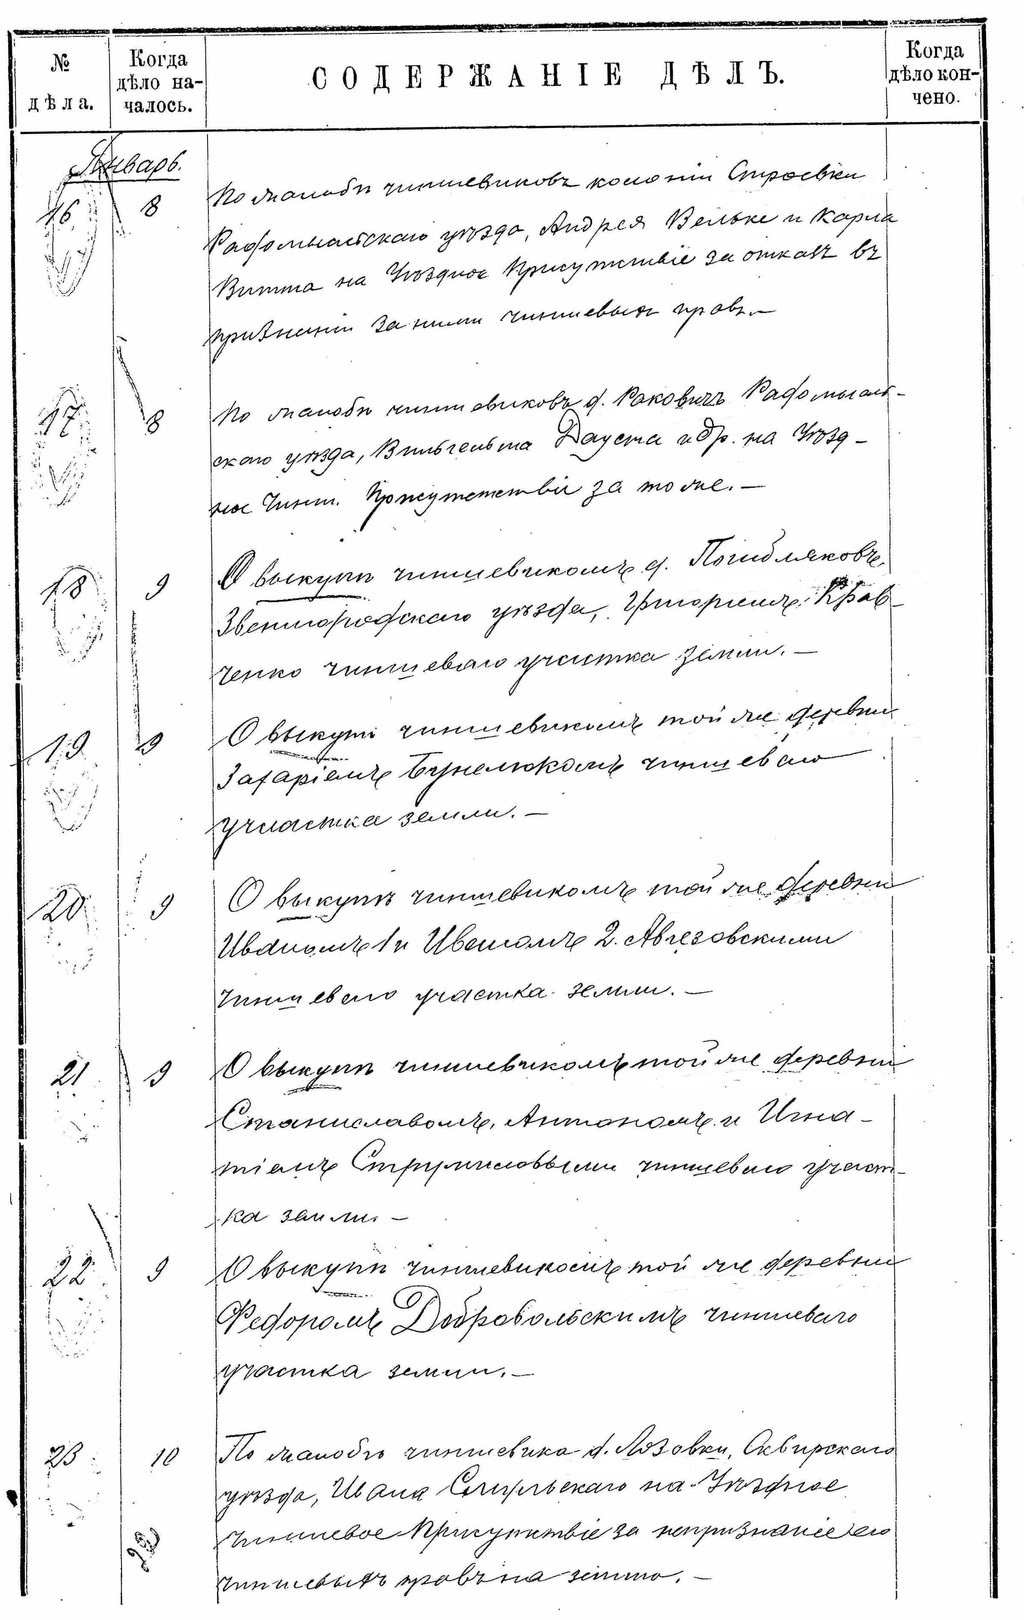 № дѣла.
Когда дѣло началось.
СОДЕРЖАНІЕ ДѢЛЪ.
Когда дѣло кончено.
Январь.
16 8 По жалобѣ чиншевиковъ колоніи
Радомысльскаго уѣзда, Андрея Вельке и Карла
Витта на Уѣздное Присутствіе за отказъ въ
признаніи за ними чиншевыхъ правъ.—
17 8 По жалобѣ чиншевиковъ д. Раковичъ Радомысль-
скаго уѣзда, Вильгельма Дауста и др. на Уѣзд-
ное Чинш. Присутствіе за тоже.—
18 9 О выкупѣ чиншевикомъ д. Погибляковъ,
Звенигородскаго уѣзда, Григоріемъ Крав-
ченко чиншеваго участка земли.—
19 9 О выкупѣ чиншевикомъ той же деревни
Захаріемъ чиншеваго
участка земли.—
20 9 О выкупѣ чиншевикомъ той же деревни
Иваномъ 1 и Иваномъ 2
чиншеваго участка земли.—
21 9 О выкупѣ чиншевикомъ той же деревни
Станиславомъ, Антономъ и Игна-
тіемъ чиншеваго участ-
ка земли.—
22 9 О выкупѣ чиншевикомъ той же деревни
Федоромъ Добровольскимъ чиншеваго
участка земли.—
23 10 По жалобѣ чиншевика д. Лозовки, Сквирскаго
уѣзда, Ивана на Уѣздное
Чиншевое Присутствіе за непризнаніе его
чиншевыхъ правъ на землю.—